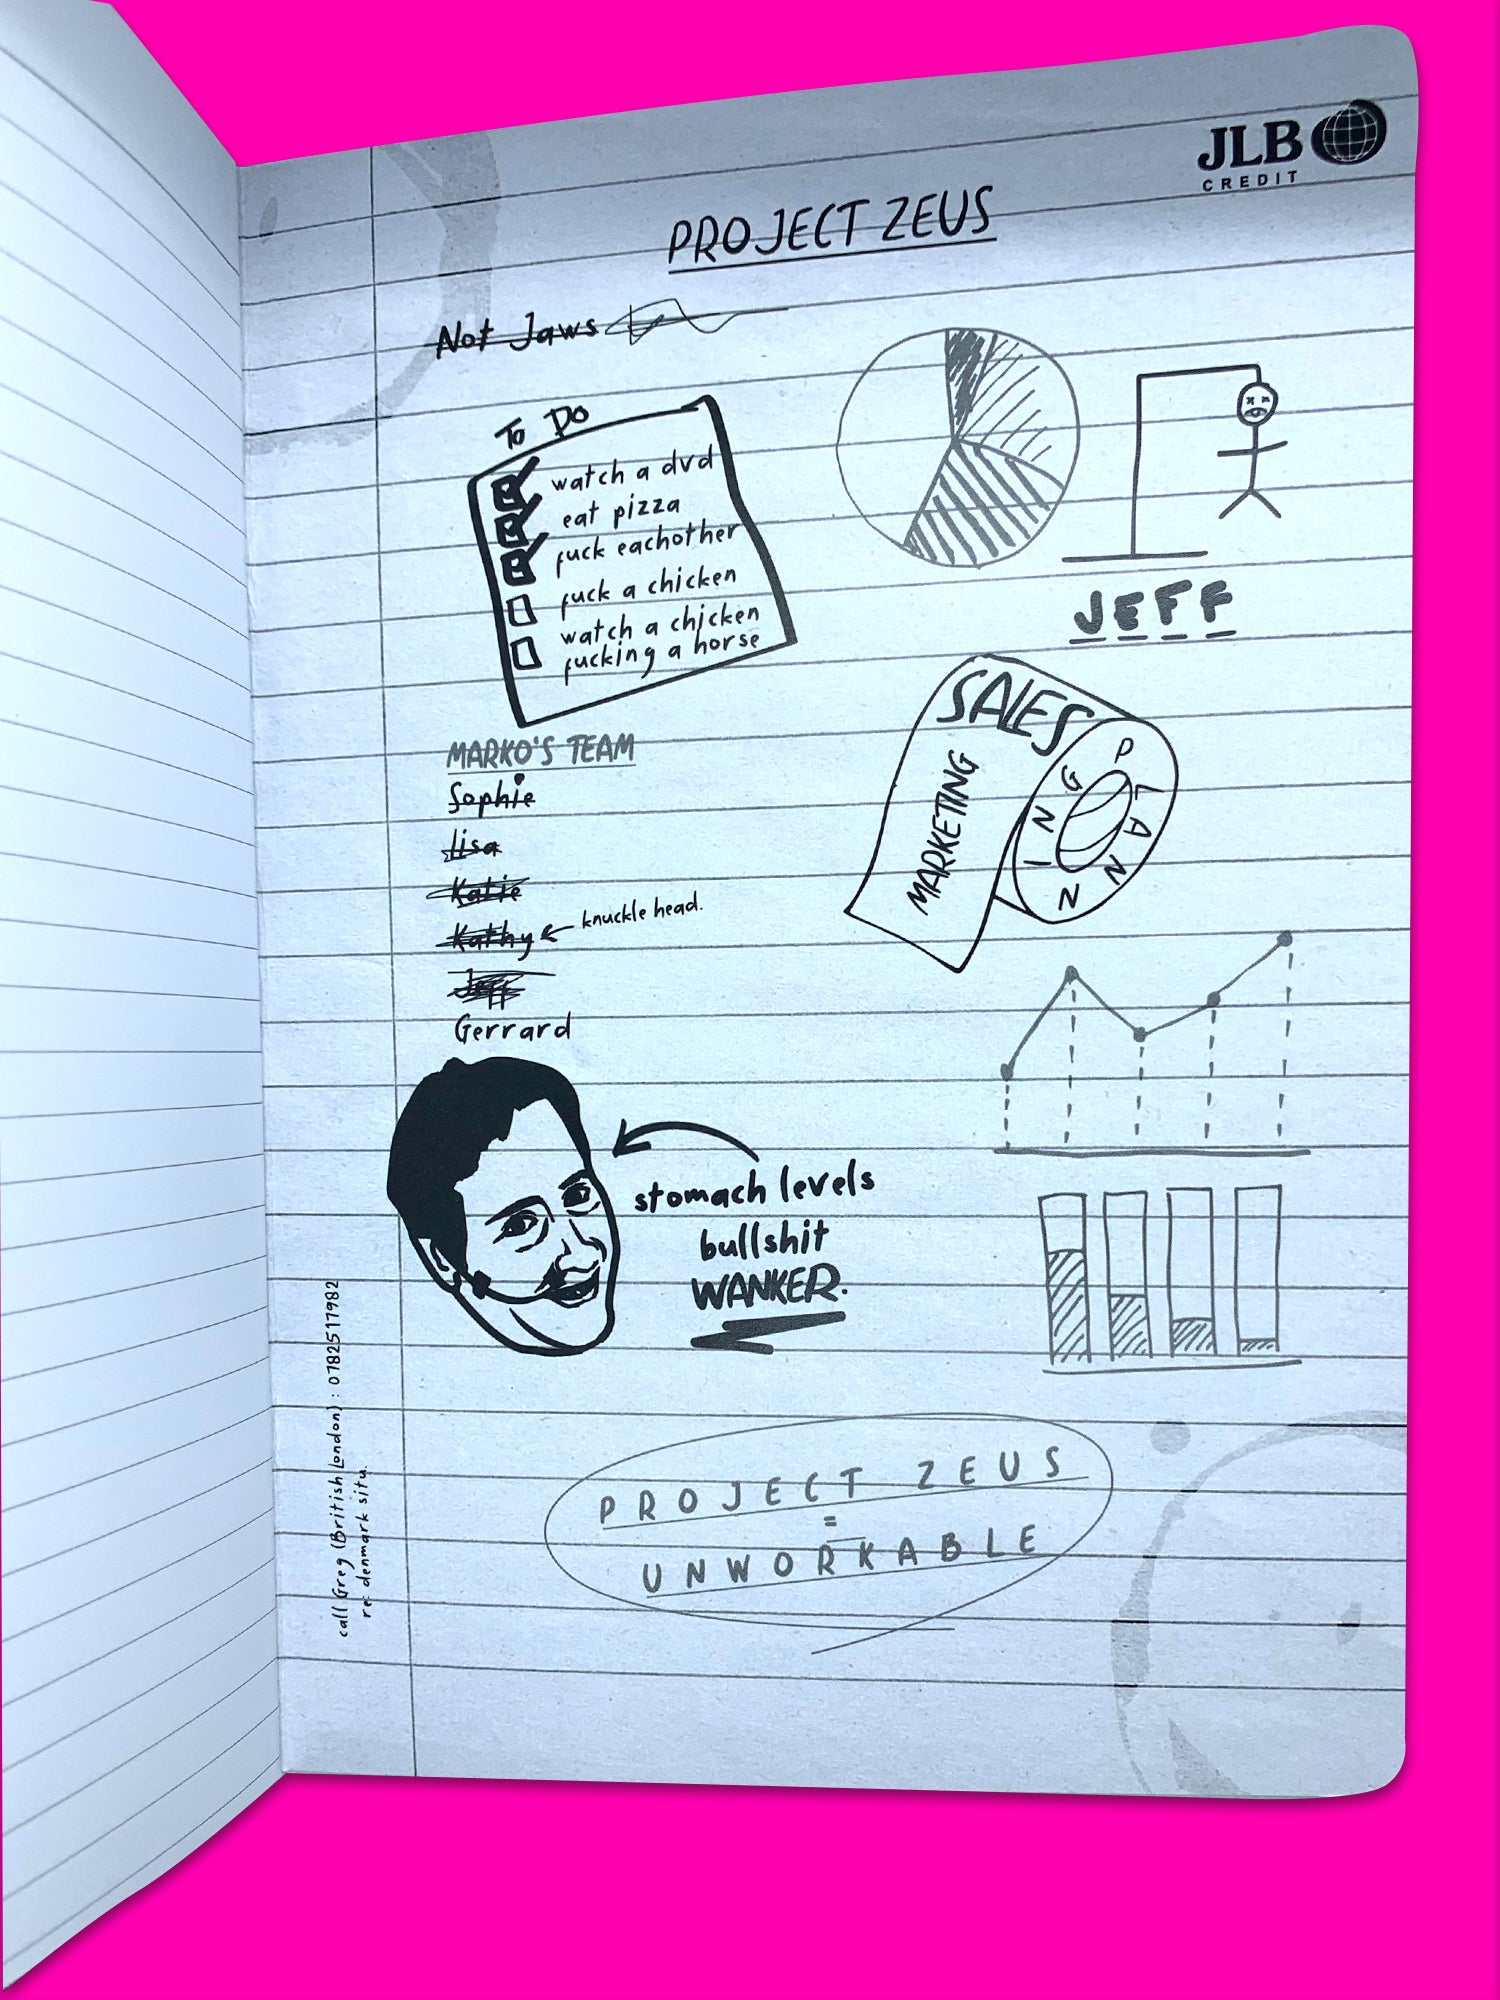 JLB
CREDIT
PROJECT ZEUS
Not Jaws
To Do
watch a dvd
eat pizza
fuck eachother
fuck a chicken
watch a chicken
fucking a horse
JEFF
SALES
MARKETING
PLANNING
MARKO'S TEAM
Sophie
Lisa
Katie
Kathy ← knuckle head.
Jeff
Gerrard
stomach levels
bullshit
WANKER.
call Greg (British London) : 0782517982
re: denmark situ.
PROJECT ZEUS
=
UNWORKABLE